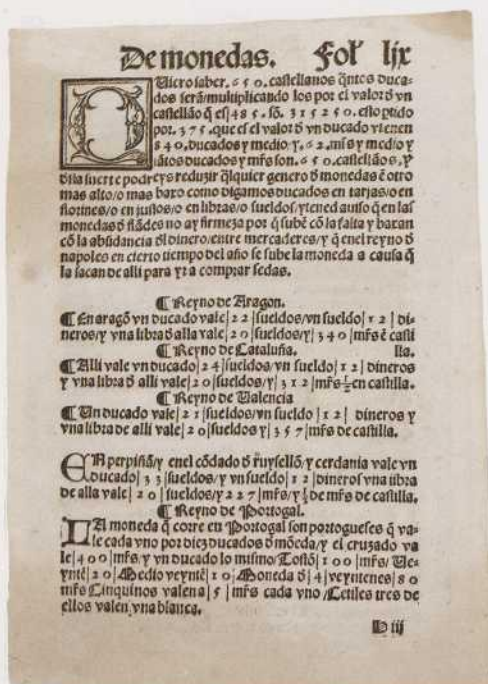 De monedas. Fol. ljx
Uiero saber. 650. castellanos q̃ntos duca-
dos serã/multiplicando los por el valor ð vn
castellão q̃ es|485. sõ. 315250. esto ꝑtido
por. 375. que es el valor ð vn ducado vienen
840. ducados y medio/y. 62. mr̃s y medio y
tãtos ducados y mr̃s son. 650. castellãos, y
ð la suerte podreys reduzir q̃lquier genero ð monedas ẽ otro
mas alto/o mas baxo como digamos ducados en tarjas/o en
florines/o en justos/o en libras/o sueldos/ytened auiso q̃ en las
monedas ð flãdes no ay firmeza por q̃ subẽ cõ la falta y baxan
cõ la abũdancia ðl dinero/entre mercaderes/y q̃ enel reyno ð
napoles en cierto tiempo del año se sube la moneda a causa q̃
la sacan de alli para yr a comprar sedas.
¶ Reyno de Aragon.
¶ En aragõ vn ducado vale|22|sueldos/vn sueldo|12|di-
neros/y vna libra ð alla vale|20|sueldos/y|340|mr̃s ẽ casti
¶ Reyno de Cataluña. lla.
¶ Alli vale vn ducado|24|sueldos/vn sueldo|12|dineros
y vna libra ð alli vale|20|sueldos/y|312|mr̃s ½ en castilla.
¶ Reyno de Ualencia
¶ Un ducado vale|21|sueldos/vn sueldo|12|dineros y
vna libra de alli vale|20|sueldos y|357|mr̃s de castilla.
EN perpiñã/y enel cõdado ð ruysellõ/y cerdania vale vn
ducado|33|sueldos/y vn sueldo|12|dineros vna libra
de alla vale|20|sueldos/y 227|mr̃s/y de mr̃s de castilla.
¶ Reyno de Portogal.
LA moneda q̃ corre en Portogal son portogueses q̃ va-
le cada vno por diez ducados ð mõeda/y el cruzado va
le|400|mr̃s/y vn ducado lo mismo/Tostõ|100|mr̃s/Ue-
yntẽ|20|Medio veyntẽ|10|Moneda ð|4|veyntenes|80
mr̃s Cinquinos valen a|5|mr̃s cada vno/Cetiles tres de
ellos valen vna blanca.
H iij